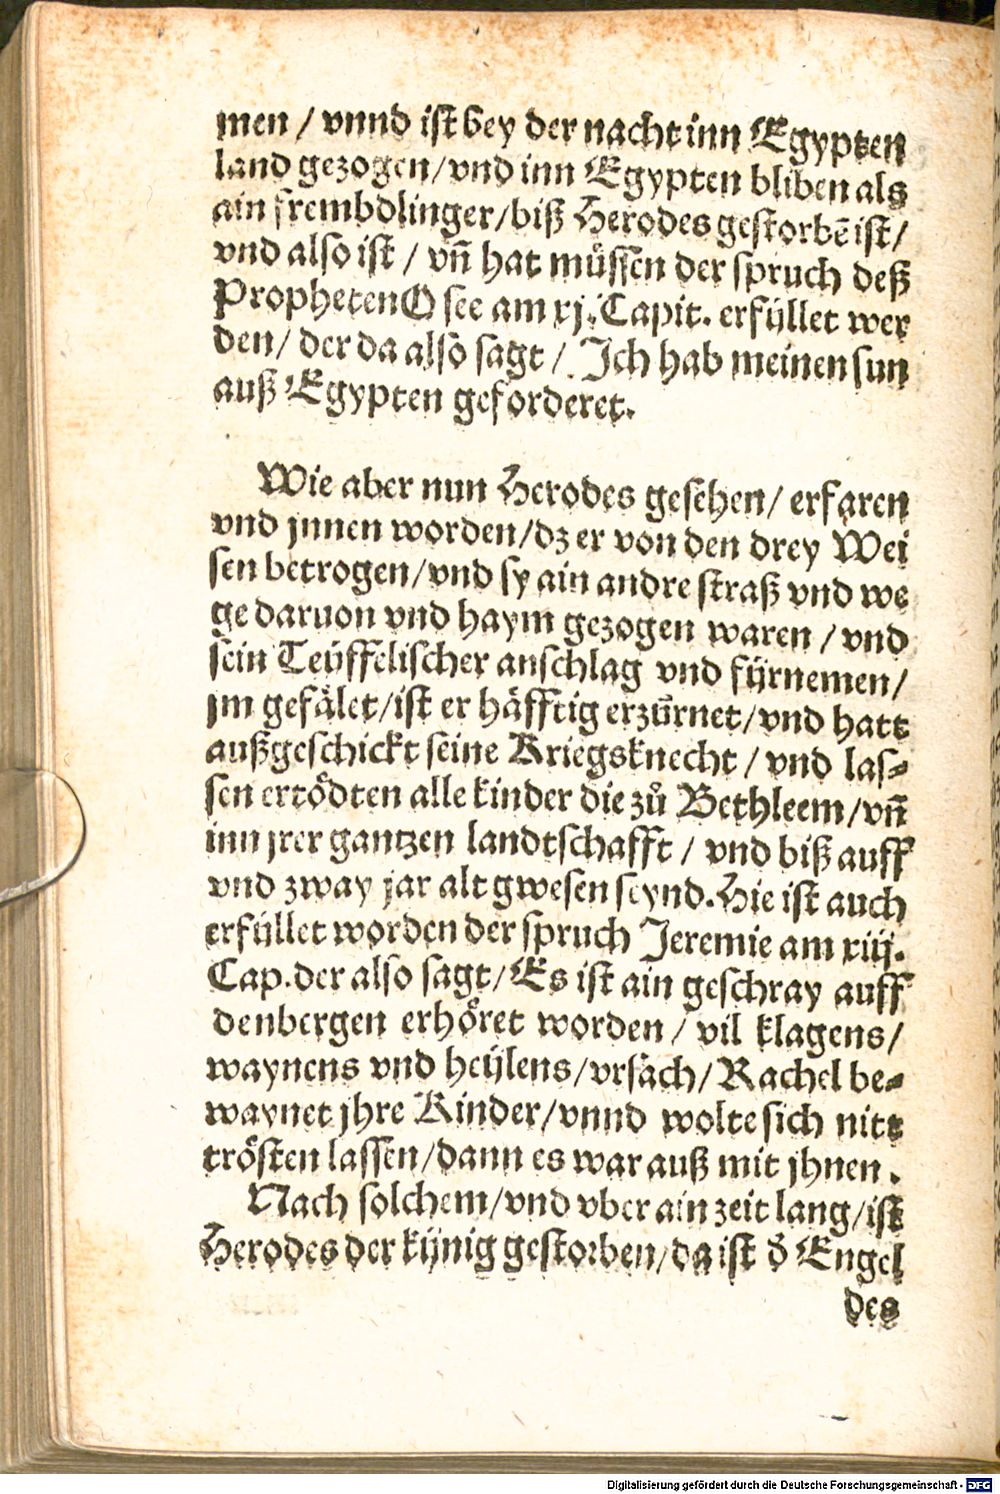 men / vnnd ist bey der nacht inn Egypten
land gezogen / vnd inn Egypten bliben als
ain frembdlinger / biß Herodes gestorbē ist /
vnd also ist / vñ hat müssen der spruch deß
Propheten Osee am xj. Capit. erfüllet wer
den / der da also sagt / Ich hab meinen sun
auß Egypten geforderet.
Wie aber nun Herodes gesehen / erfaren
vnd jnnen worden / dz er von den drey Wei
sen betrogen / vnd sy ain andre straß vnd we
ge daruon vnd haym gezogen waren / vnd
sein Teüffelischer anschlag vnd fürnemen /
jm gefälet / ist er häfftig erzürnet / vnd hatt
außgeschickt seine Kriegsknecht / vnd las⸗
sen ertödten alle kinder die zů Bethleem / vñ
inn jrer gantzen landtschafft / vnd biß auff
vnd zway jar alt gwesen seynd. Hie ist auch
erfüllet worden der spruch Jeremie am xiij.
Cap. der also sagt / Es ist ain geschray auff
denbergen erhöret worden / vil klagens /
waynens vnd heülens / vrsäch / Rachel be⸗
waynet jhre Kinder / vnnd wolte sich nitt
trösten lassen / dann es war auß mit jhnen.
Nach solchem / vnd vber ain zeit lang / ist
Herodes der künig gestorben / da ist d̕ Engel
des
Digitalisierung gefördert durch die Deutsche Forschungsgemeinschaft - DFG